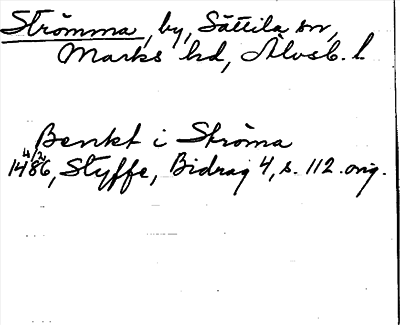 Strömma, by, Sätila sn,
Marks hd, Älvsb. l.
Benkt i Ströma
14 4/2 86, Styffe, Bidrag 4, s. 112. orig.